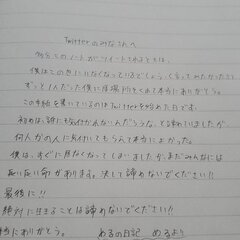 Twitterのみなさんへ
このノートがツイートされるころには、
僕はこの世にいなくなっているでしょう。
ずっと1人だった僕に居場所をくれて本当にありがとう。
この手紙を書いているのはTwitterを始めた日です。
初めは、誰にも気付かれないんだろうな、と諦めていましたが
何人かの人に気付いてもらえて本当によかった。
僕は、すぐに居なくなってしまいましたが、まだみんなには
長い長い命があります。決して諦めないでください!!
最後に!!
絶対に生きることは諦めないでください!!
本当にありがとう。 あるの日記 めるより